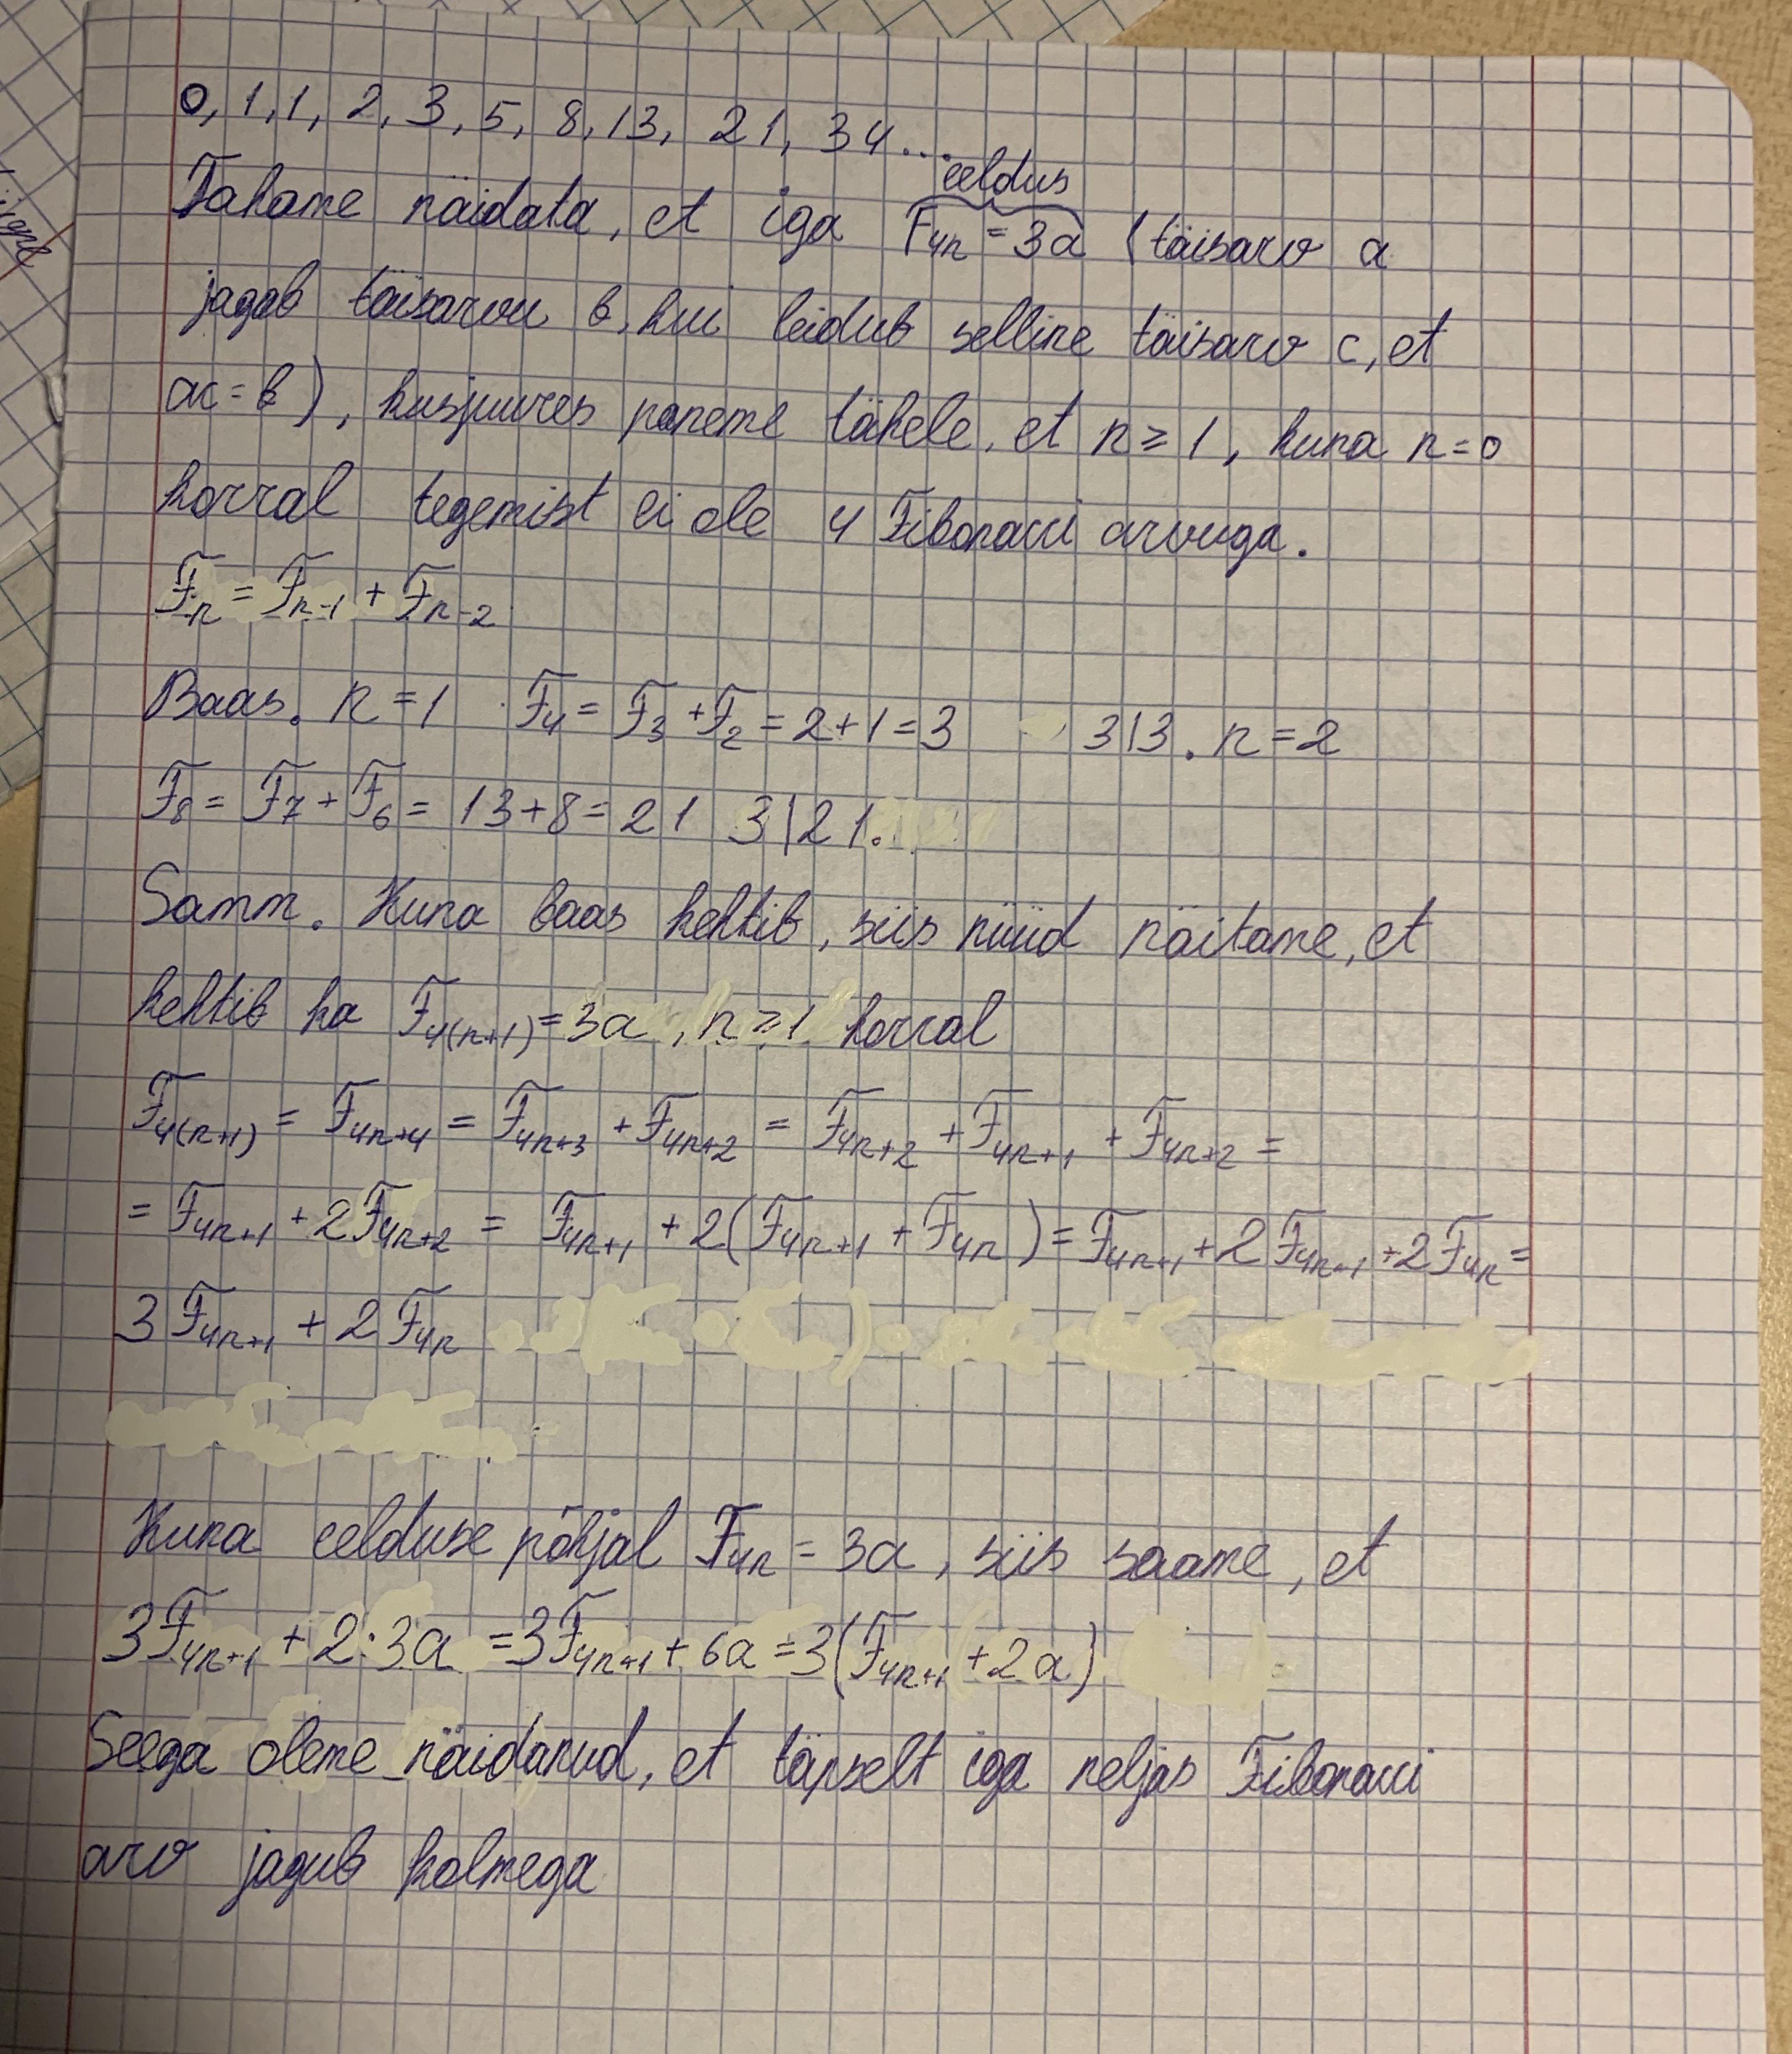 0, 1, 1, 2, 3, 5, 8, 13, 21, 34...
eeldus
Tahame näidata, et iga F₄ₙ = 3a (täisarv a
jagab täisarvu b, kui leidub selline täisarv c, et
ac = b), kusjuures paneme tähele, et n ≥ 1, kuna n = 0
korral tegemist ei ole 4 Fibonacci arvuga.
Fₙ = Fₙ₋₁ + Fₙ₋₂
Baas. n = 1 F₄ = F₃ + F₂ = 2 + 1 = 3 3|3. n = 2
F₈ = F₇ + F₆ = 13 + 8 = 21 3|21.
Samm. Kuna baas kehtib, siis nüüd näitame, et
kehtib ka F₄₍ₙ₊₁₎ = 3a, n ≥ 1 korral
F₄₍ₙ₊₁₎ = F₄ₙ₊₄ = F₄ₙ₊₃ + F₄ₙ₊₂ = F₄ₙ₊₂ + F₄ₙ₊₁ + F₄ₙ₊₂ =
= F₄ₙ₊₁ + 2F₄ₙ₊₂ = F₄ₙ₊₁ + 2(F₄ₙ₊₁ + F₄ₙ) = F₄ₙ₊₁ + 2F₄ₙ₊₁ + 2F₄ₙ =
3F₄ₙ₊₁ + 2F₄ₙ
Kuna eelduse põhjal F₄ₙ = 3a, siis saame, et
3F₄ₙ₊₁ + 2·3a = 3F₄ₙ₊₁ + 6a = 3(F₄ₙ₊₁ + 2a)
Seega oleme näidanud, et täpselt iga neljas Fibonacci
arv jagub kolmega